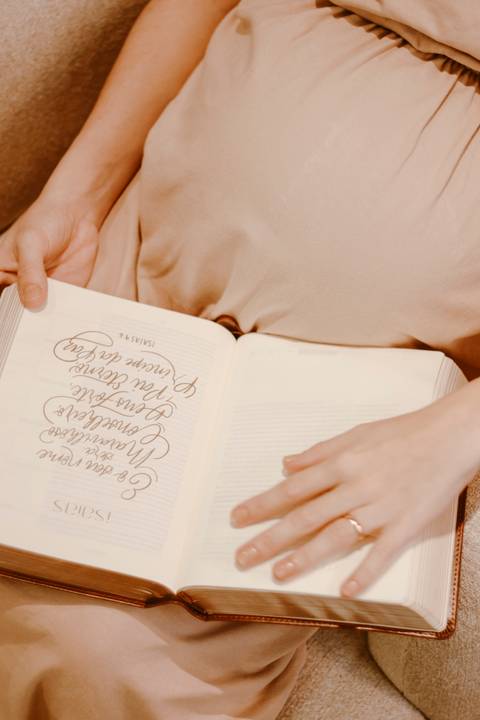 isaías
E o seu nome
será
Maravilhoso
Conselheiro
Deus forte,
Pai Eterno,
Príncipe da Paz
ISAÍAS 9.6